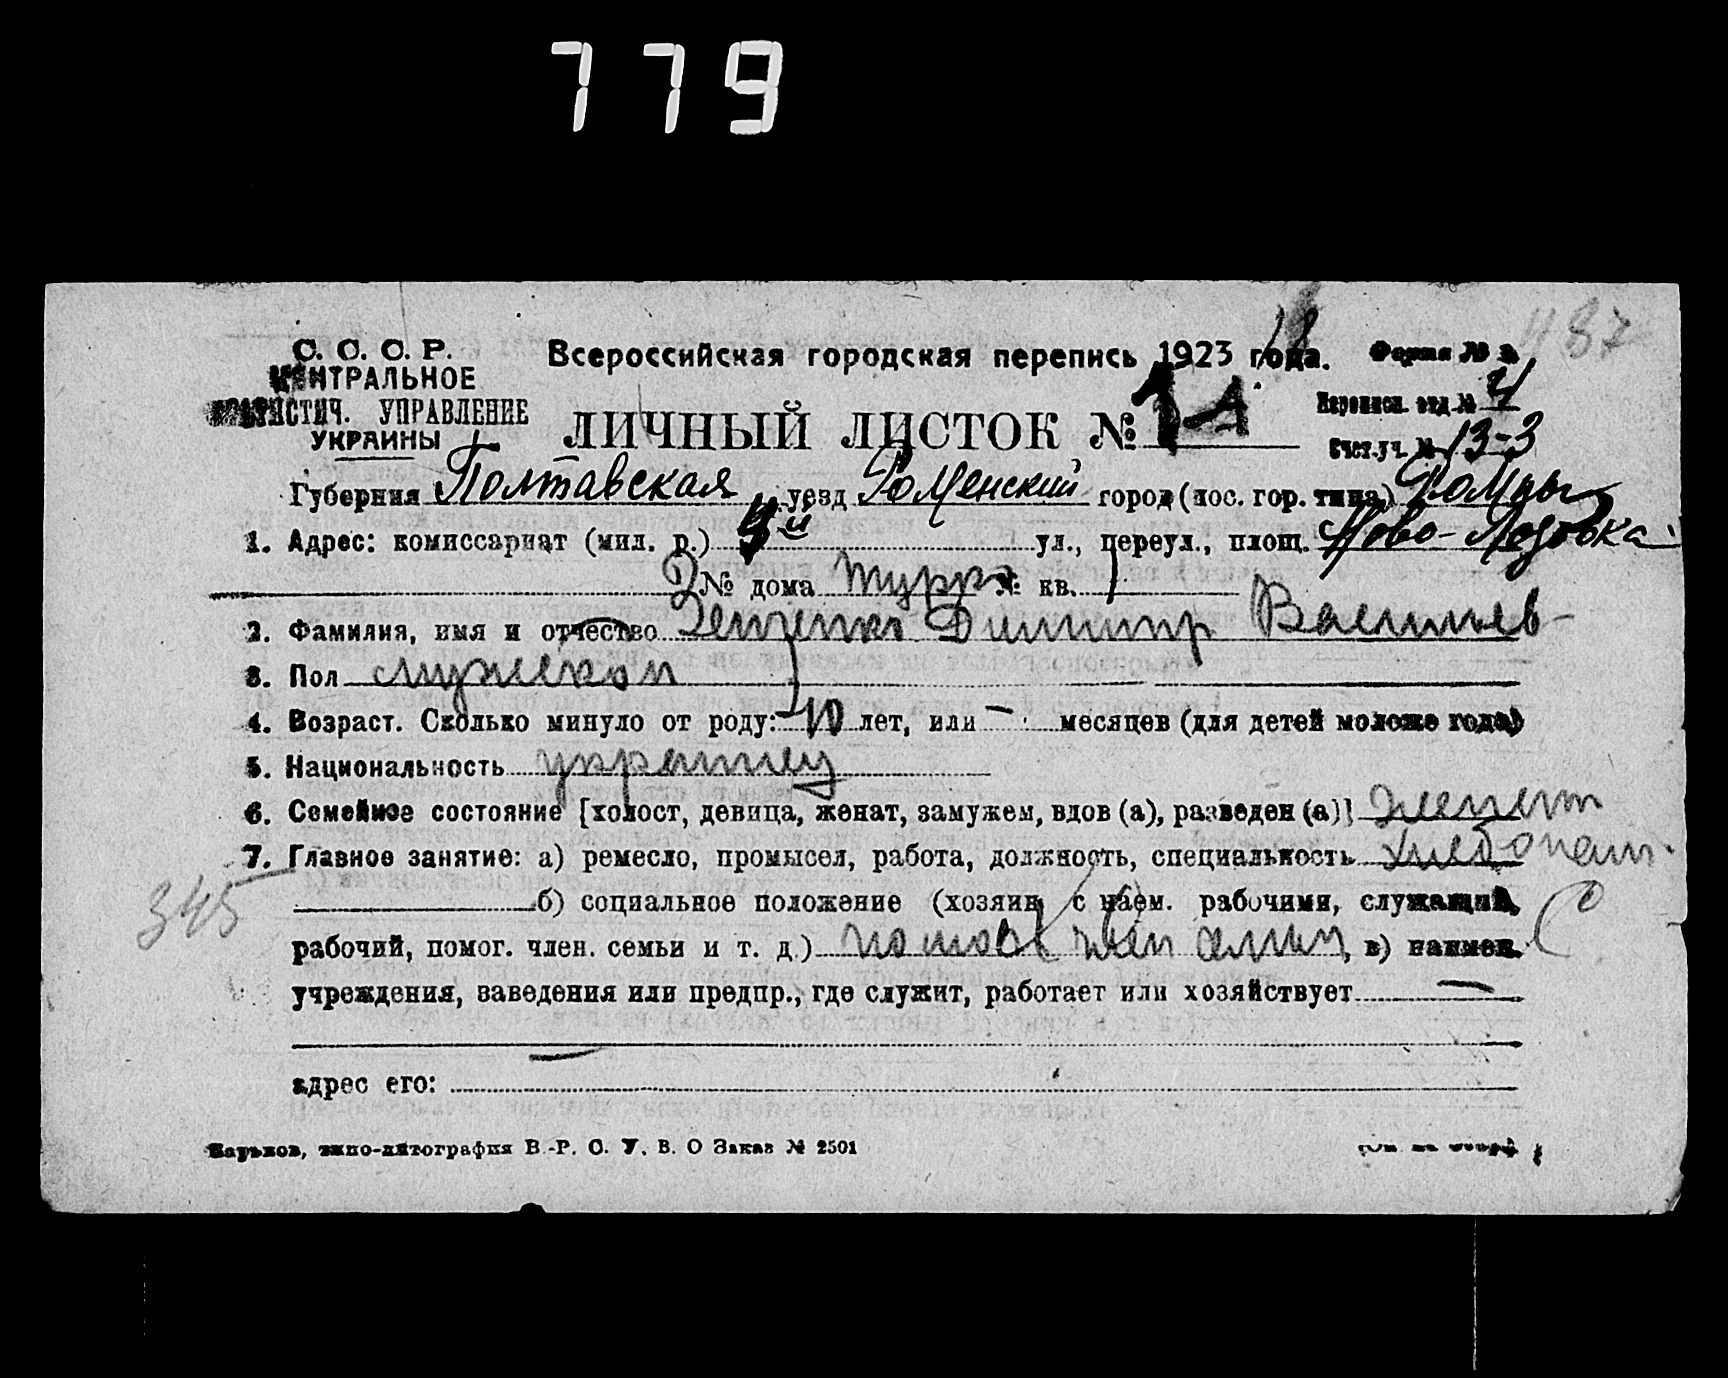 779
487
С. С. С. Р. Всероссийская городская перепись 1923 года. Форма № 18
ЦЕНТРАЛЬНОЕ
СТАТИСТИЧ. УПРАВЛЕНИЕ
УКРАИНЫ
ЛИЧНЫЙ ЛИСТОК №
Переписн. отд. № 4
Счет. уч. № 13-3
Губерния Полтавская уезд Роменский город (пос. гор. типа) Ромны
1. Адрес: комиссариат (мил. р.) й ул., переул., площ. Ново-Лозовка
№ дома № кв.
2. Фамилия, имя и отчество Димитр Васильев
3. Пол мужской
4. Возраст. Сколько минуло от роду: 40 лет, или - месяцев (для детей моложе года)
5. Национальность украинец
6. Семейное состояние [холост, девица, женат, замужем, вдов (а), разведен (а)] женат
7. Главное занятие: а) ремесло, промысел, работа, должность, специальность хлебопаш.
345
б) социальное положение (хозяин с наем. рабочими, служащий,
рабочий, помог. член. семьи и т. д.) , в) наимен.
учреждения, заведения или предпр., где служит, работает или хозяйствует —
адрес его:
Харьков, типо-литография В.-Р. С. У. В. О Заказ № 2501